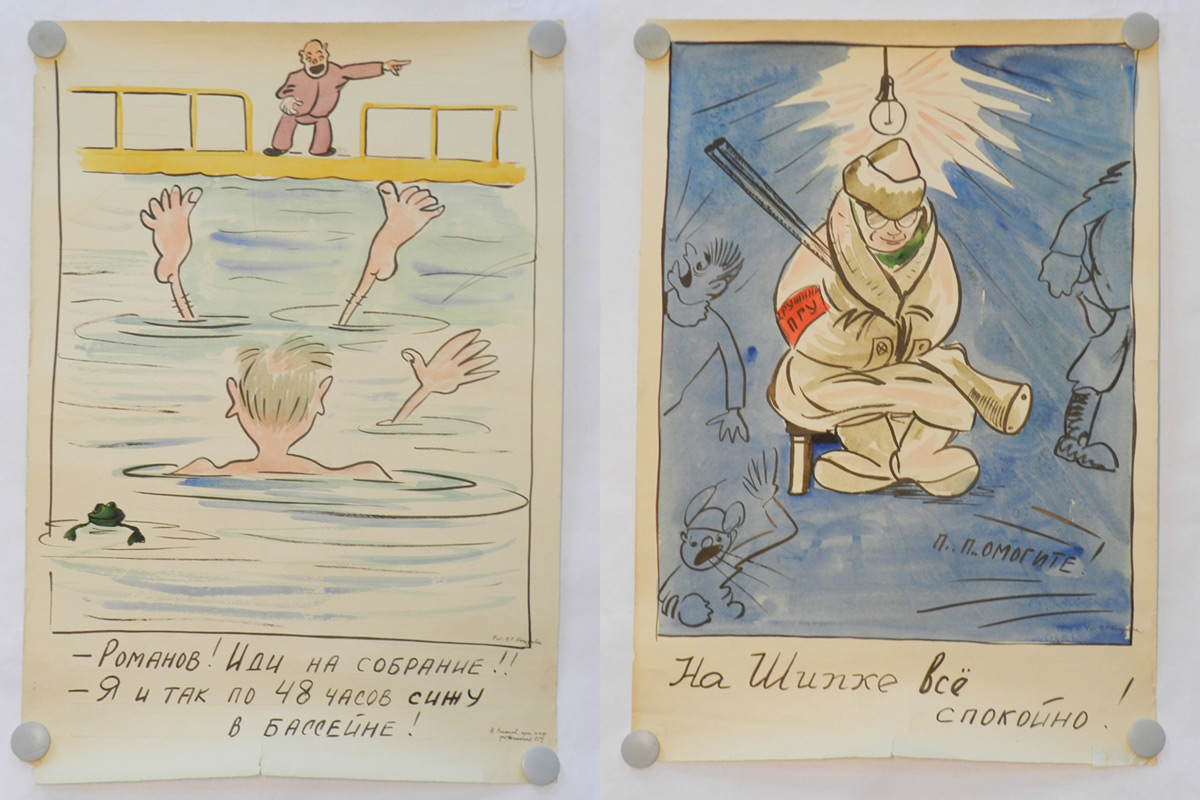 – Романов! Иди на собрание!!
– Я и так по 48 часов сижу
в бассейне!
ДРУЖИНА
ПГУ
П.. П..ОМОГИТЕ!
На Шипке всё
спокойно!